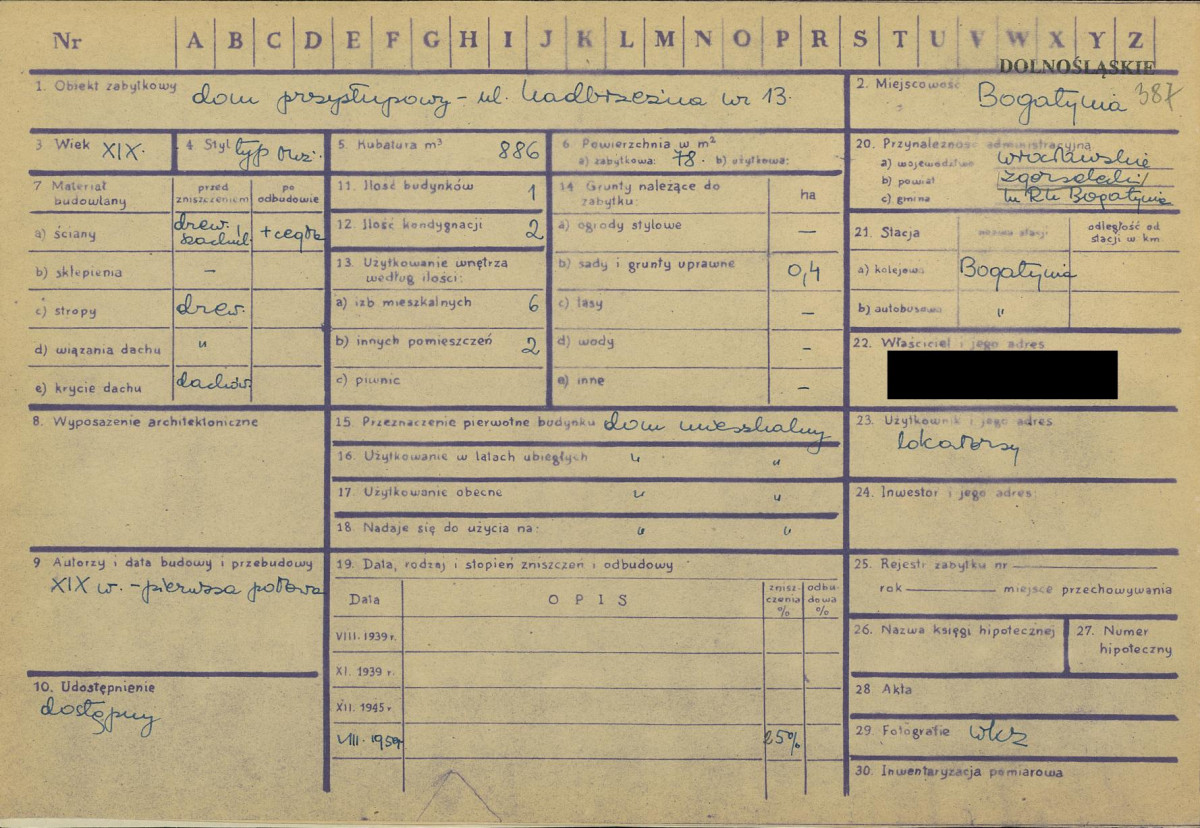 Nr A B C D E F G H I J K L M N O P R S T U V W X Y Z
DOLNOŚLĄSKIE
387
1. Obiekt zabytkowy dom przysłupowy - ul. Nadbrzeżna nr 13.
2. Miejscowość Bogatynia
3 Wiek XIX.
4 Styl typ
5. Kubatura m³ 886
6. Powierzchnia w m²
a) zabytkowa: 78. b) użytkowa:
7 Materiał budowlany
przed zniszczeniem
po odbudowie
a) ściany drew. szachul. + cegła
b) sklepienia —
c) stropy drew.
d) wiązania dachu "
e) krycie dachu dachów.
8. Wyposażenie architektoniczne
9 Autorzy i data budowy i przebudowy
XIX w. - pierwsza połowa
10. Udostępnienie
dostępny
11. Ilość budynków 1
12. Ilość kondygnacji 2
13. Użytkowanie wnętrza
według ilości:
a) izb mieszkalnych 6
b) innych pomieszczeń 2
c) piwnic
14 Grunty należące do
zabytku:
ha
a) ogrody stylowe —
b) sady i grunty uprawne 0,4
c) lasy —
d) wody —
e) inne —
15. Przeznaczenie pierwotne budynku dom mieszkalny
16. Użytkowanie w latach ubiegłych " "
17. Użytkowanie obecne " "
18. Nadaje się do użycia na: " "
19. Data, rodzaj i stopień zniszczeń i odbudowy
Data
OPIS
znisz-
czenia
%
odbu-
dowa
%
VIII. 1939 r.
XI. 1939 r.
XII. 1945 r.
VIII. 1959 25%
20. Przynależność administracyjna
a) województwo wrocławskie
b) powiat zgorzelecki
c) gmina Bogatynia
21. Stacja
nazwa stacji
odległość od
stacji w km
a) kolejowa Bogatynia
b) autobusowa "
22. Właściciel i jego adres
23. Użytkownik i jego adres
lokatorzy
24. Inwestor i jego adres:
25. Rejestr zabytku nr
rok miejsce przechowywania
26. Nazwa księgi hipotecznej
27. Numer
hipoteczny
28 Akta
29. Fotografie wkz
30. Inwentaryzacja pomiarowa